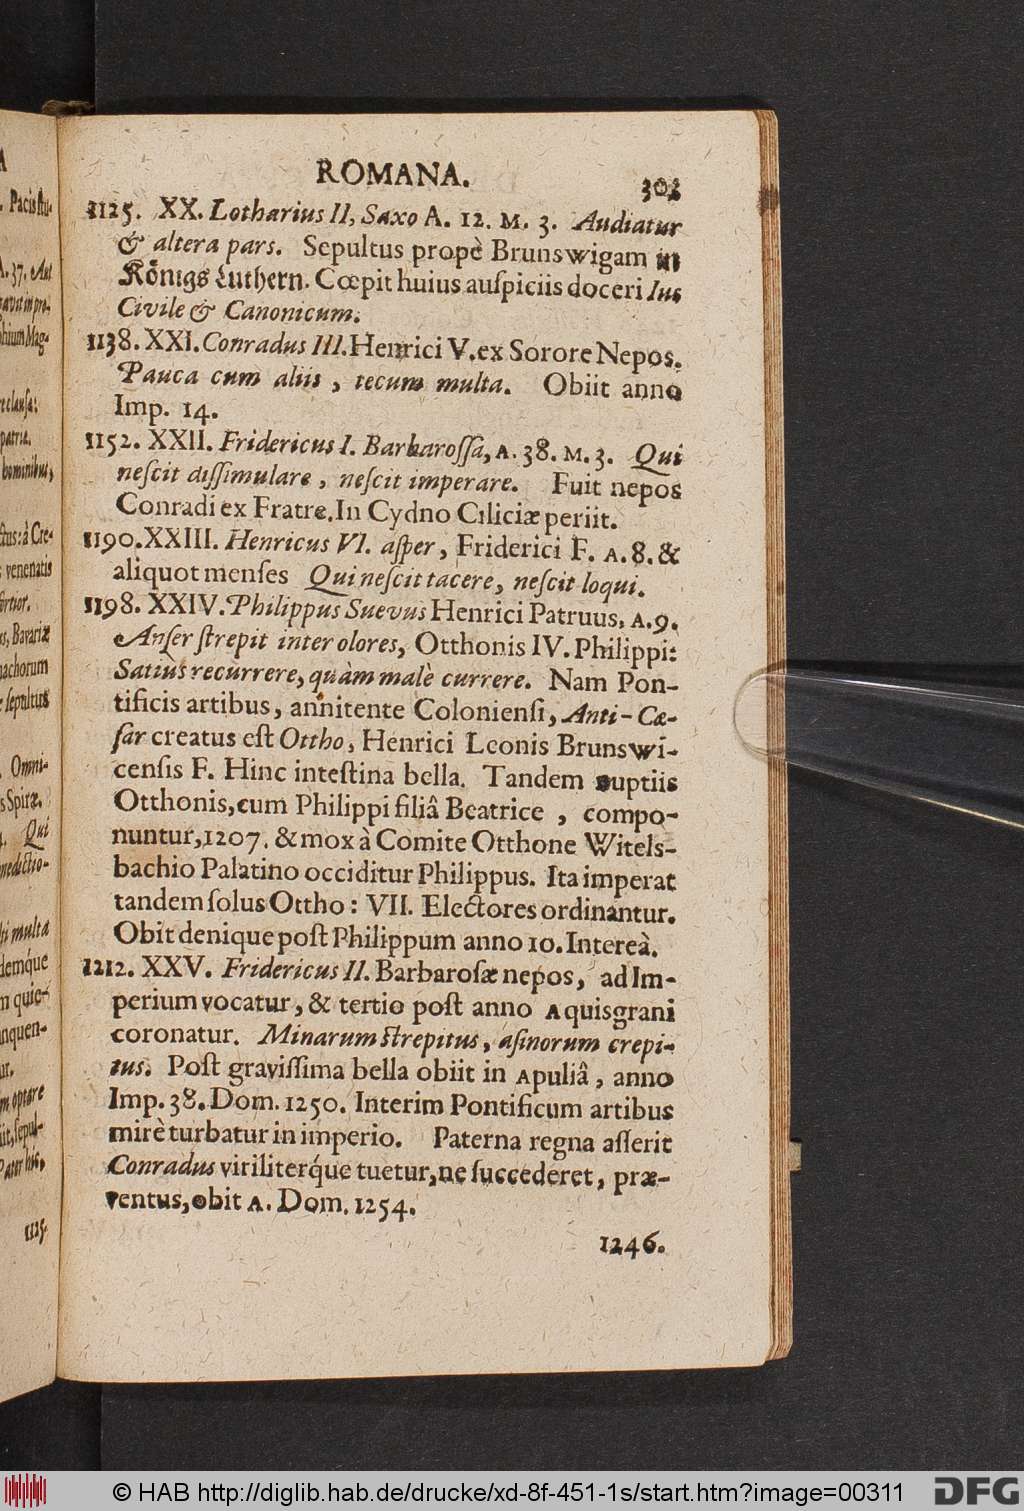 ROMANA.
1125. XX. Lotharius II, Saxo A. 12. M. 3. Audiatur
& altera pars. Sepultus propè Brunswigam in
Königs Luthern. Cœpit huius auſpiciis doceri Ius
Civile & Canonicum.
1138. XXI. Conradus III. Henrici V. ex Sorore Nepos.
Pauca cum aliis, tecum multa. Obiit anno
Imp. 14.
1152. XXII. Fridericus I. Barbaroſſa, A. 38. M. 3. Qui
neſcit diſſimulare, neſcit imperare. Fuit nepos
Conradi ex Fratre. In Cydno Ciliciæ periit.
1190. XXIII. Henricus VI. aſper, Friderici F. A. 8. &
aliquot menſes Qui neſcit tacere, neſcit loqui.
1198. XXIV. Philippus Suevus Henrici Patruus, A. 9.
Anſer ſtrepit inter olores, Otthonis IV. Philippi:
Satiùs recurrere, quàm malè currere. Nam Pon-
tificis artibus, annitente Colonienſi, Anti-Cæ-
ſar creatus eſt Ottho, Henrici Leonis Brunswi-
cenſis F. Hinc inteſtina bella. Tandem nuptiis
Otthonis, cum Philippi filiâ Beatrice, compo-
nuntur, 1207. & mox à Comite Otthone Witels-
bachio Palatino occiditur Philippus. Ita imperat
tandem ſolus Ottho: VII. Electores ordinantur.
Obit denique poſt Philippum anno 10. Intereà.
1212. XXV. Fridericus II. Barbaroſæ nepos, ad Im-
perium vocatur, & tertio poſt anno Aquisgrani
coronatur. Minarum ſtrepitus, aſinorum crepi-
tus. Poſt graviſſima bella obiit in Apuliâ, anno
Imp. 38. Dom. 1250. Interim Pontificum artibus
mirè turbatur in imperio. Paterna regna aſſerit
Conradus viriliterq́ue tuetur, ne ſuccederet, præ-
ventus, obit A. Dom. 1254.
1246.
© HAB http://diglib.hab.de/drucke/xd-8f-451-1s/start.htm?image=00311
DFG